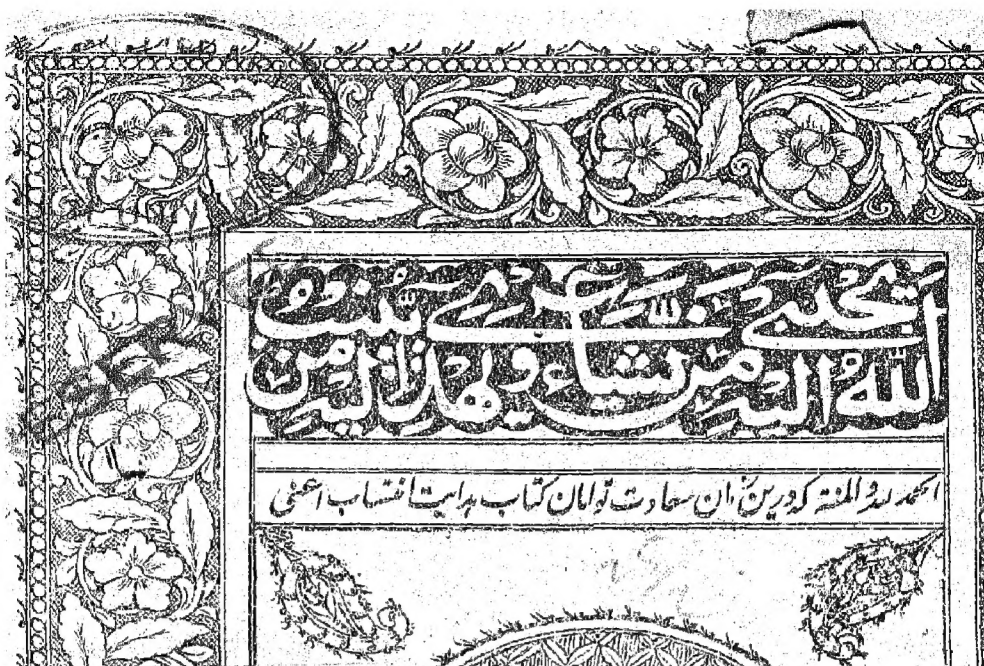 الله يجتبى اليه من يشاء ويهدى اليه من ينيب
الحمد لله والمنته که درین زمان سعادت توامان کتاب هدایت انتساب اعنی